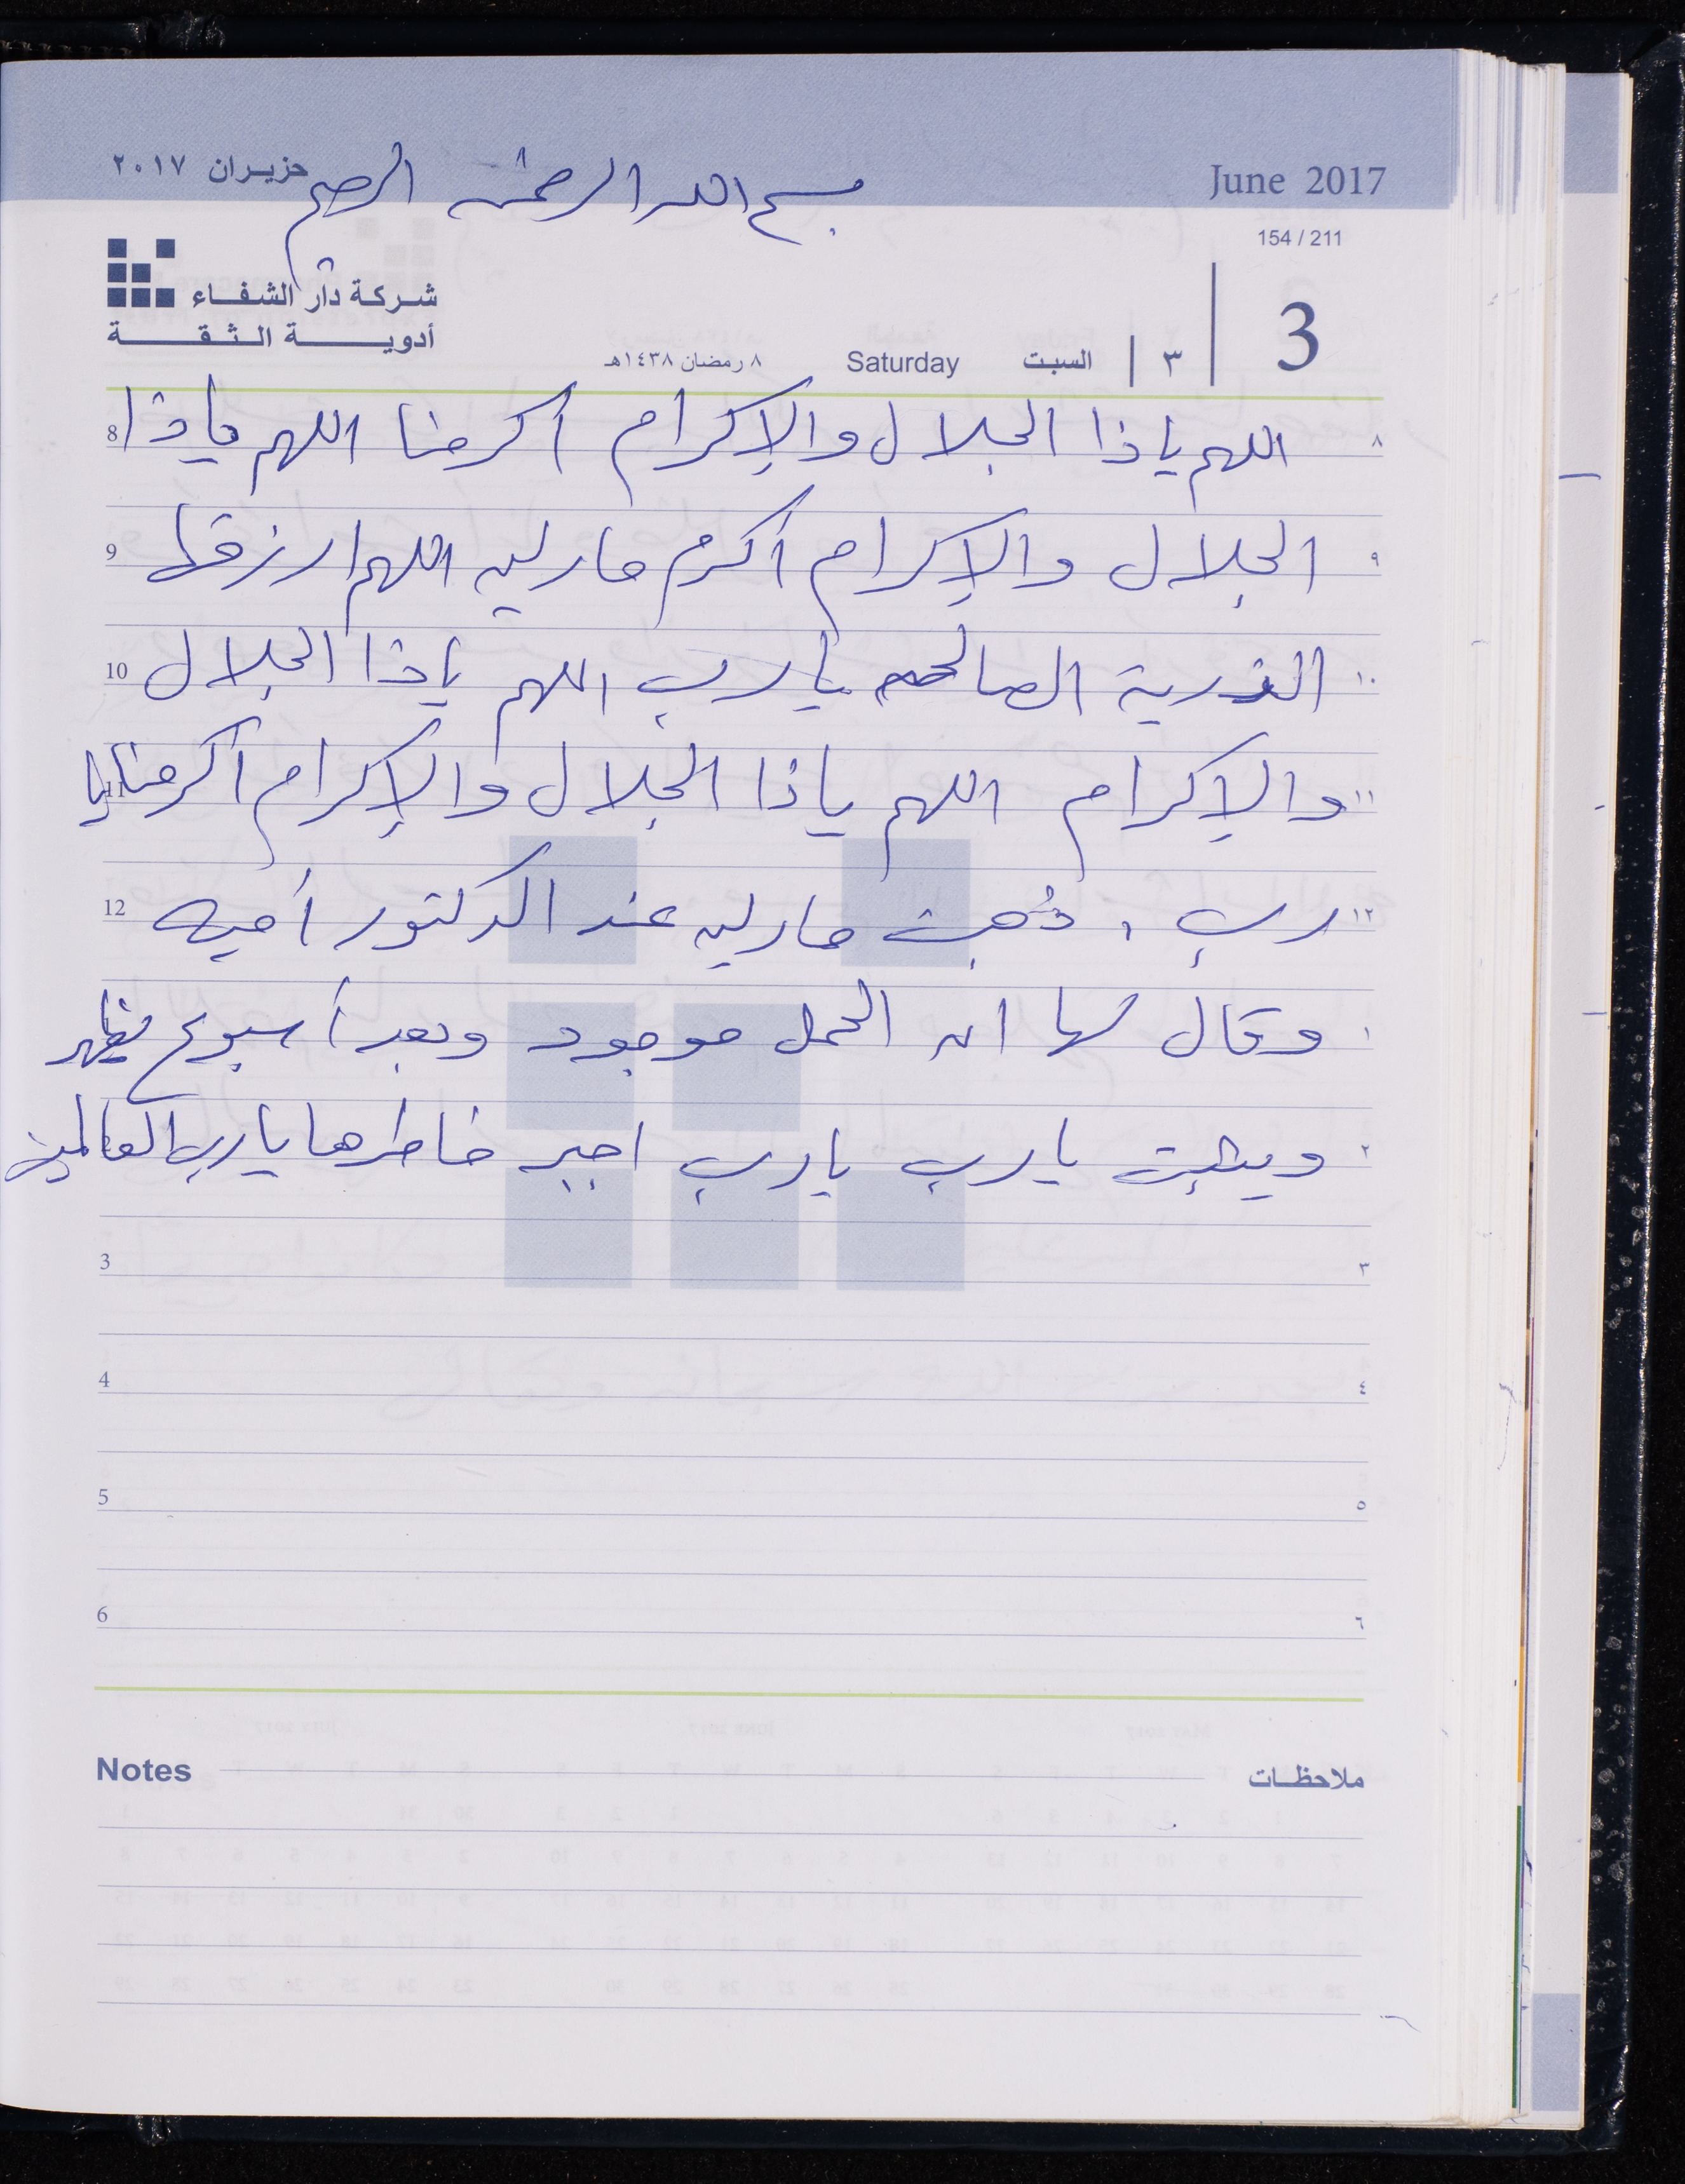 حزيـران ٢٠١٧
June 2017
بسم الله الرحمن الرحيم
154 / 211
شركة دار الشفاء
أدويـة الـثـقـة
3
٣
السبت
Saturday
٨ رمضان ١٤٣٨هـ
8 اللهم ياذا الجلال والإكرام أكرمنا اللهم ياذا ٨
9 الجلال والإكرام أكرم مارلين اللهم ارزقها ٩
10 الذرية الصالحه يا رب اللهم ياذا الجلال ١٠
11 والإكرام اللهم ياذا الجلال والإكرام أكرمنا يا ١١
12 رب . ذهبت مارلين عند الدكتور أميه ١٢
وقال لها ان الحمل موجود وبعد أسبوع يظهر ١
ويثبت يارب يارب اجبر خاطرها يارب العالمين ٢
3 ٣
4 ٤
5 ٥
6 ٦
Notes ملاحظـات